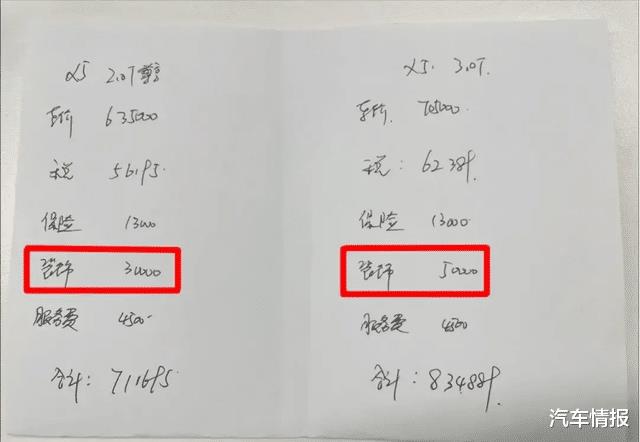 X5 2.0T 尊享
车价 635000
税 56195
保险 13000
装饰 30000
服务费 4500
合计: 711695
X5. 3.0T.
车价. 705000
税: 62389
保险 13000
装饰 50000
服务费 4500
合计: 834889.
汽车情报